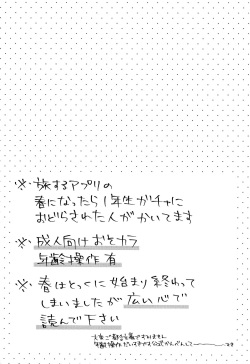 ※・旅するアプリの
春になったら1年生ガチャに
おどらされた人がかいてます
※・成人向けおそカラ
年齢操作有
※・春はとっくに始まり終わって
しまいましたが広い心で
読んで下さい